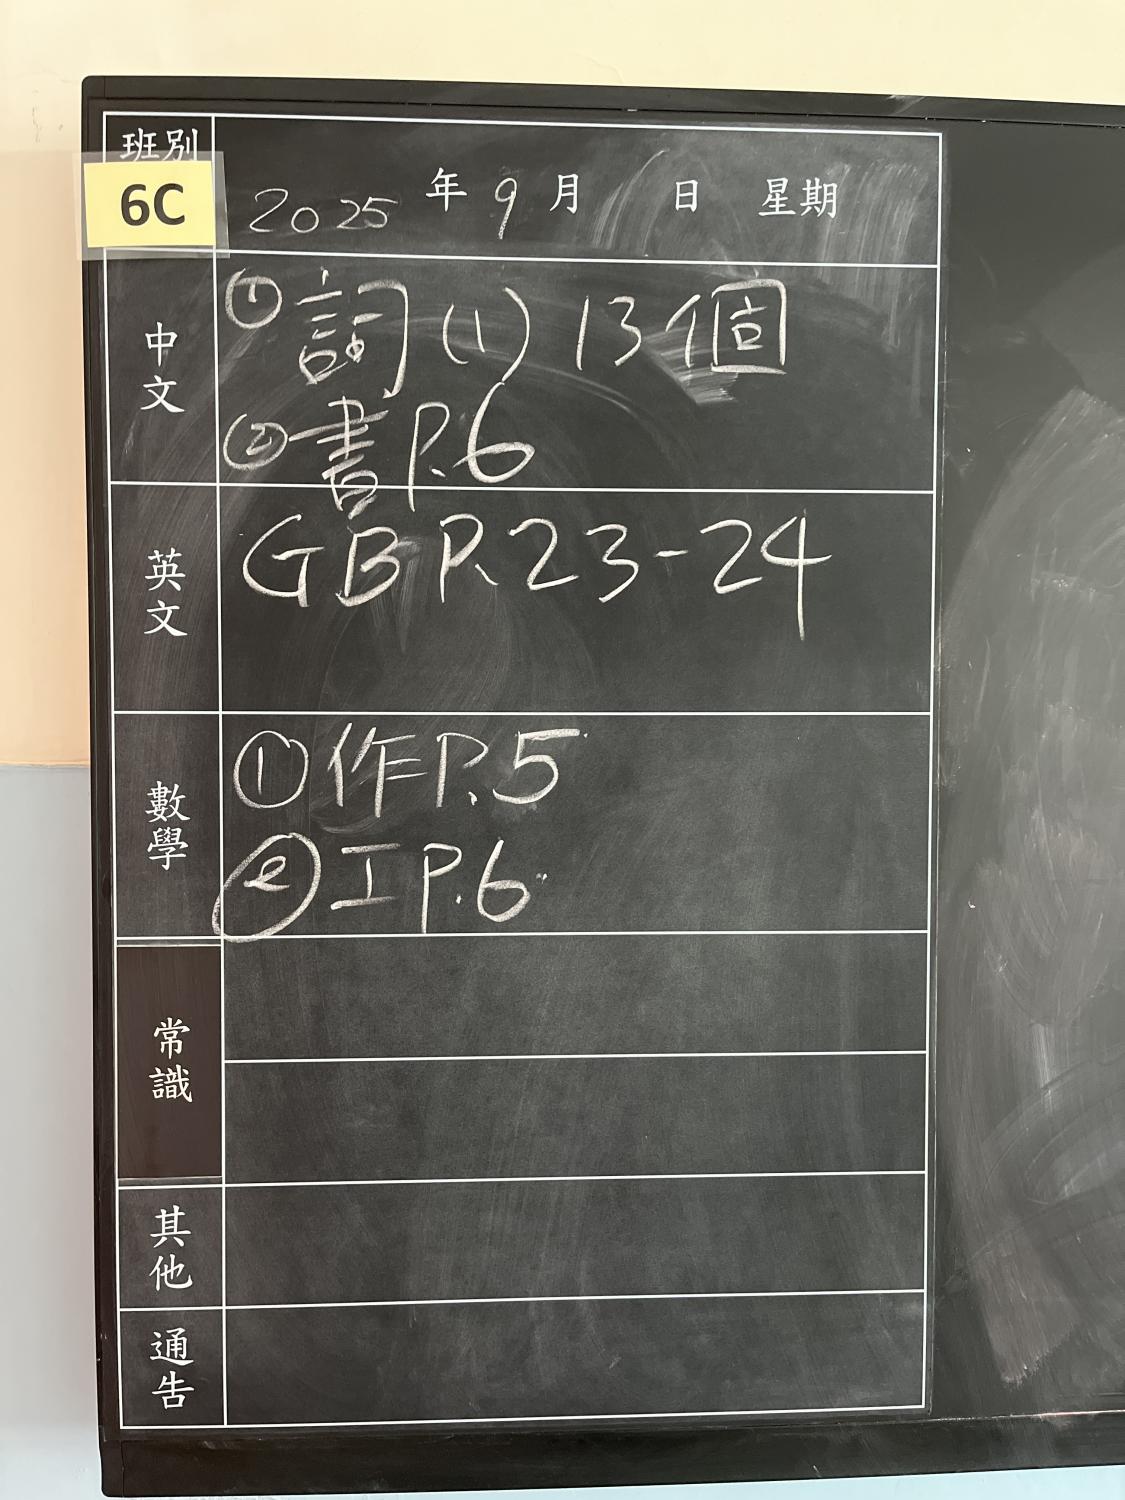 班別
6C
2025 年 9 月 日 星期
中文
① 詞(1) 13個
② 書 P.6
英文
GB P.23-24
數學
① 作 P.5
② 工 P.6
常識
其他
通告